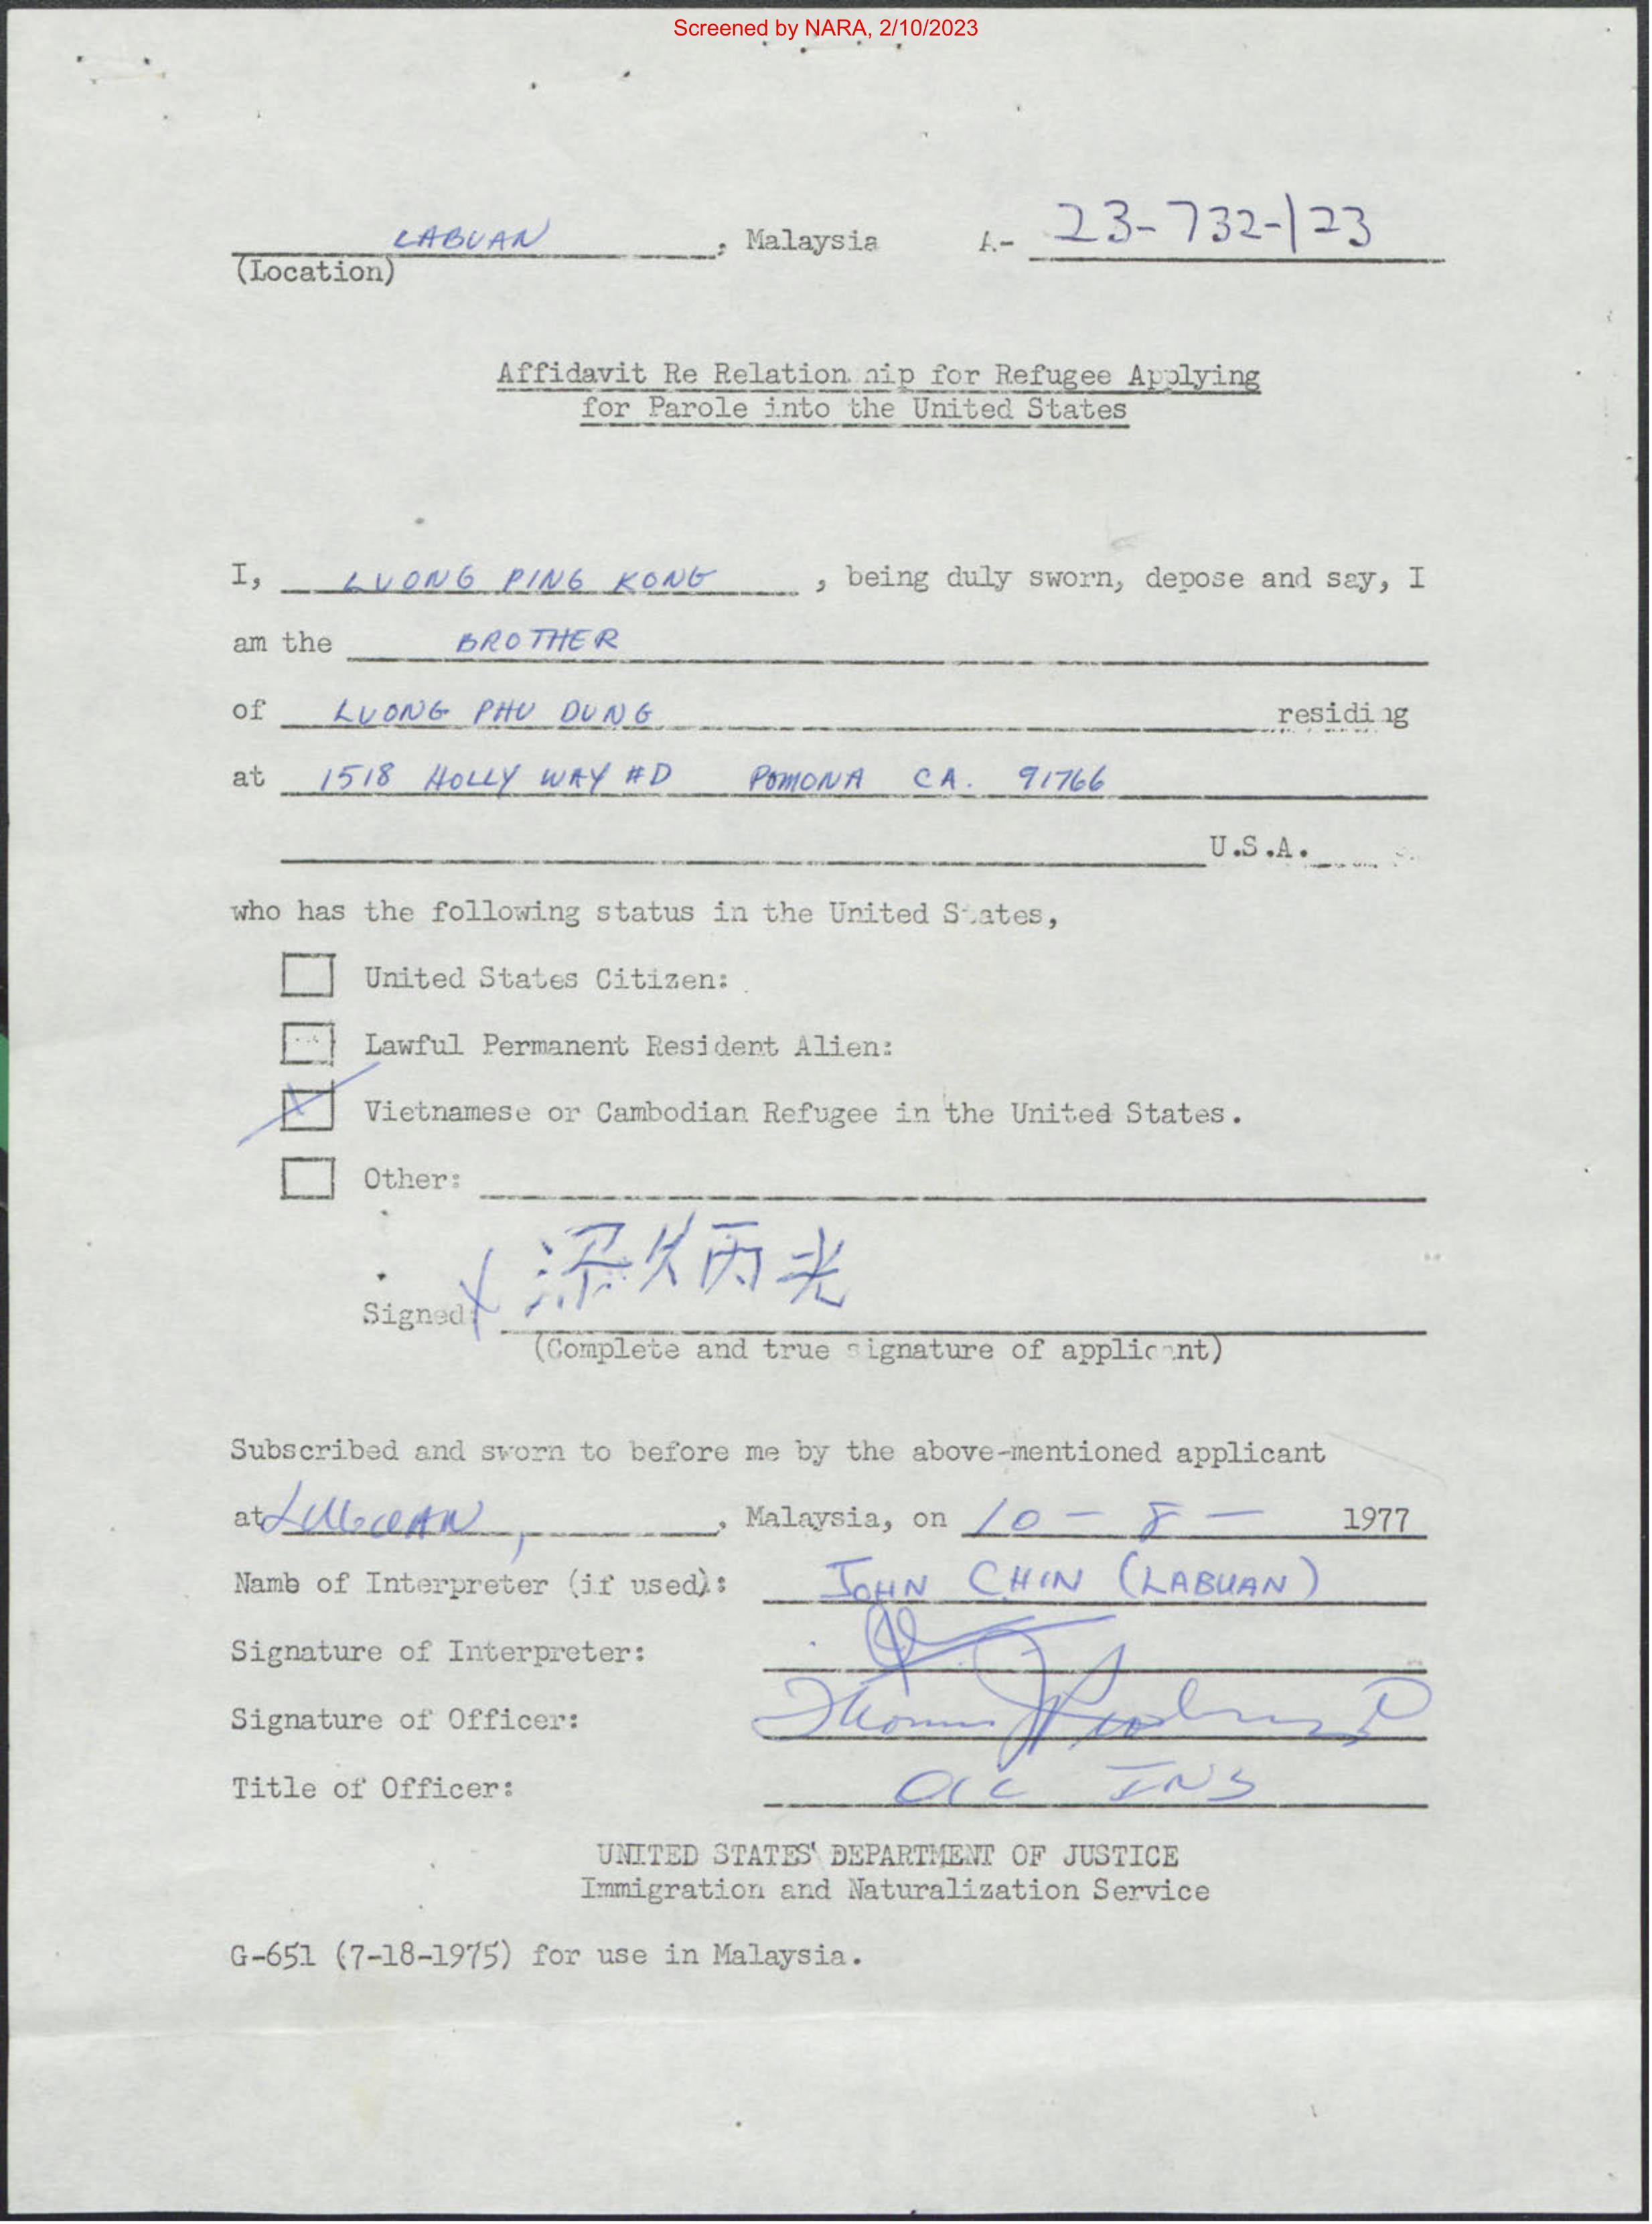 Screened by NARA, 2/10/2023
LABUAN, Malaysia A- 23-732-123
(Location)
Affidavit Re Relation hip for Refugee Applying
for Parole into the United States
I, LUONG PING KONG, being duly sworn, depose and say, I
am the BROTHER
of LUONG PHU DUNG residing
at 1518 HOLLY WAY #D POMONA CA. 91766
U.S.A.
who has the following status in the United States,
United States Citizen:
Lawful Permanent Resident Alien:
X Vietnamese or Cambodian Refugee in the United States.
Other:
Signed: X
(Complete and true signature of applicant)
Subscribed and sworn to before me by the above-mentioned applicant
at LABUAN, Malaysia, on 10-8- 1977
Name of Interpreter (if used): JOHN CHIN (LABUAN)
Signature of Interpreter:
Signature of Officer: Thomas
Title of Officer: OIC INS
UNITED STATES DEPARTMENT OF JUSTICE
Immigration and Naturalization Service
G-651 (7-18-1975) for use in Malaysia.